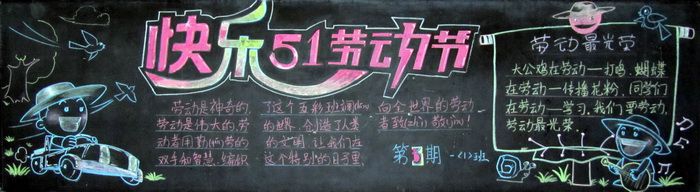 快乐51劳动节
劳动是神奇的,
劳动是伟大的,劳
动者用勤(qín)劳的
双手和智慧,编织
了这个五彩班斓(lán)
的世界,创造了人类
的文明,让我们在
这个特别的日子里,
向全世界的劳动
者致(zhì)敬(jìng)!
第3期 一(1)班
劳动最光荣
大公鸡在劳动—打鸣,蝴蝶
在劳动—传播花粉,同学们
在劳动—学习,我们要劳动,
劳动最光荣.